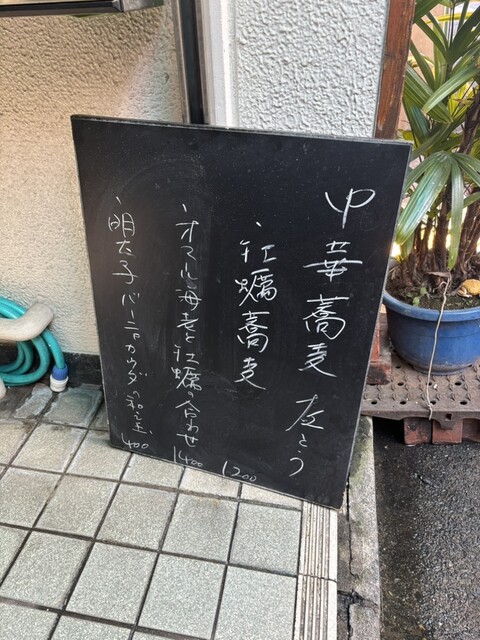 中華蕎麦 左とう
・牡蠣蕎麦 1200
・オマール海老と牡蠣の合わせ 1400
・明太子バーニャカウダの和え玉 400